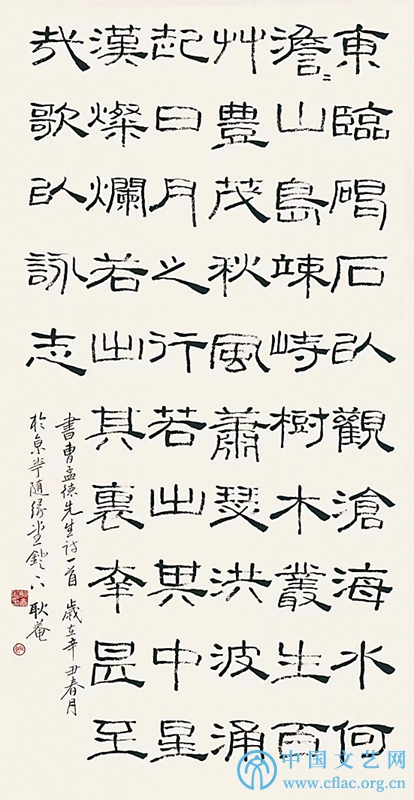 東臨碣石以觀滄海水何
澹〻山島竦峙樹木叢生百
艸豐茂秋風蕭瑟洪波涌
起日月之行若出其中星
漢燦爛若出其裏幸甚至
哉歌以詠志
書曹孟德先生詩一首 歲在辛丑春月
於京華隨緣堂鐙下 耿菴
中国文艺网
www.cflac.org.cn